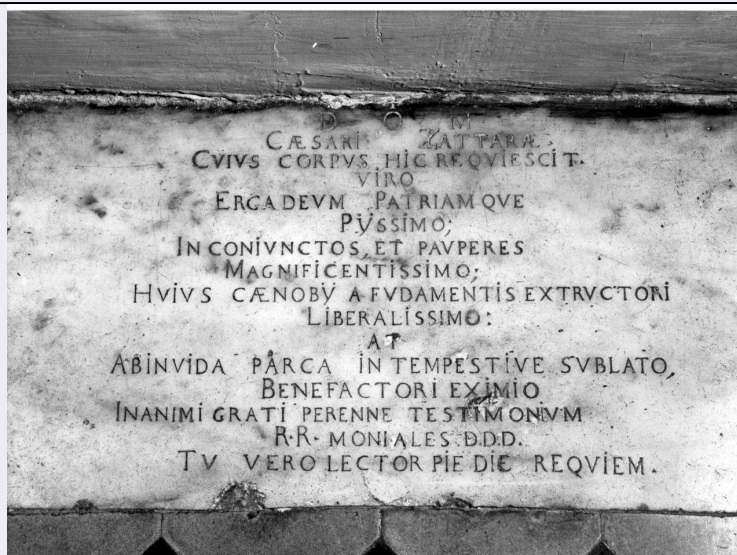 D O M
CÆSARI ZATTARÆ.
CVIVS CORPVS HIC REQVIESCIT.
VIRO
ERGA DEVM PATRIAMQVE
PŸSSIMO;
IN CONIVNCTOS, ET PAVPERES
MAGNIFICENTISSIMO;
HVIVS CÆNOBŸ A FVDAMENTIS EXTRVCTORI
LIBERALISSIMO:
AT
AB INVIDA PARCA INTEMPESTIVE SVBLATO,
BENEFACTORI EXIMIO
IN ANIMI GRATI PERENNE TESTIMONIVM
R·R· MONIALES D.D.D.
TV VERO LECTOR PIE DIC REQVIEM.